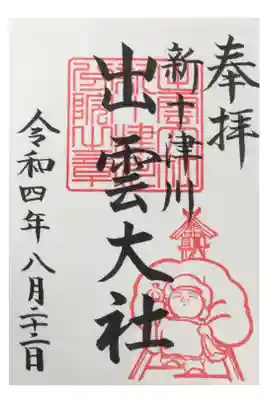 奉拝
新十津川
出雲大社
令和四年八月二十二日